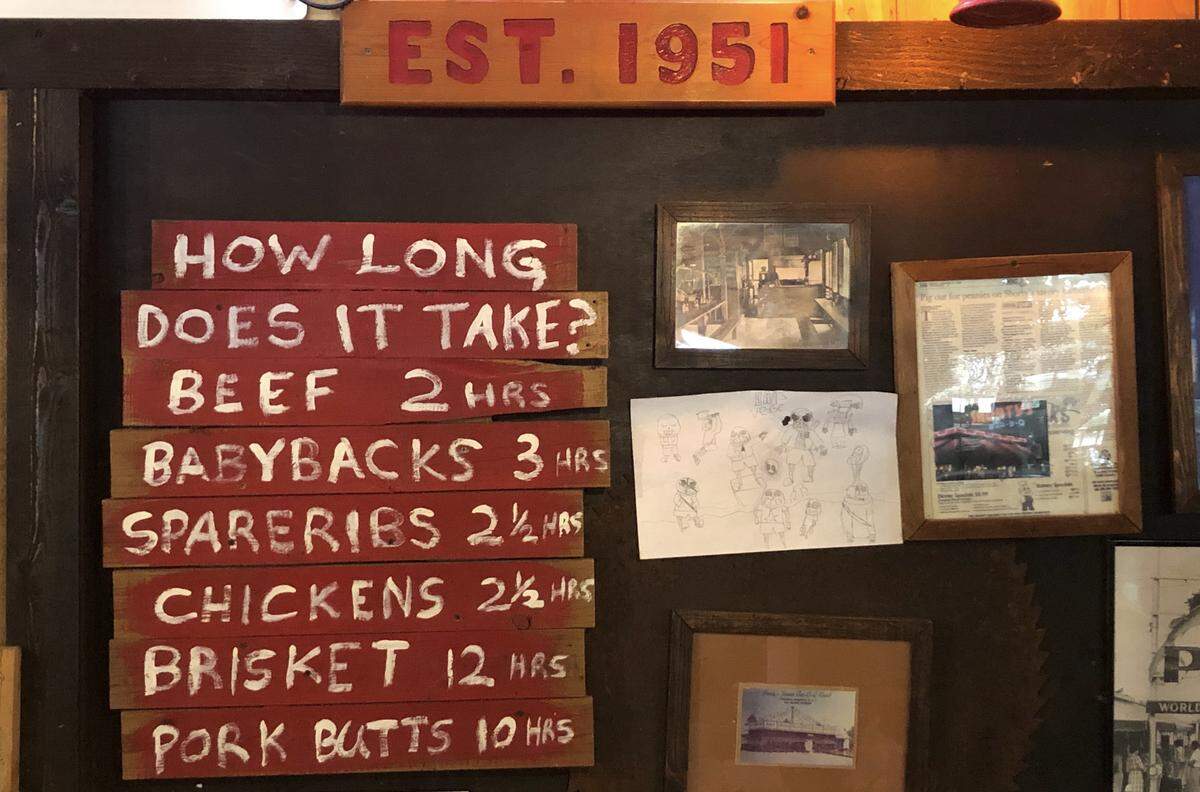 EST. 1951
HOW LONG
DOES IT TAKE?
BEEF 2 HRS
BABYBACKS 3 HRS
SPARERIBS 2½ HRS
CHICKENS 2½ HRS
BRISKET 12 HRS
PORK BUTTS 10 HRS
WORLD